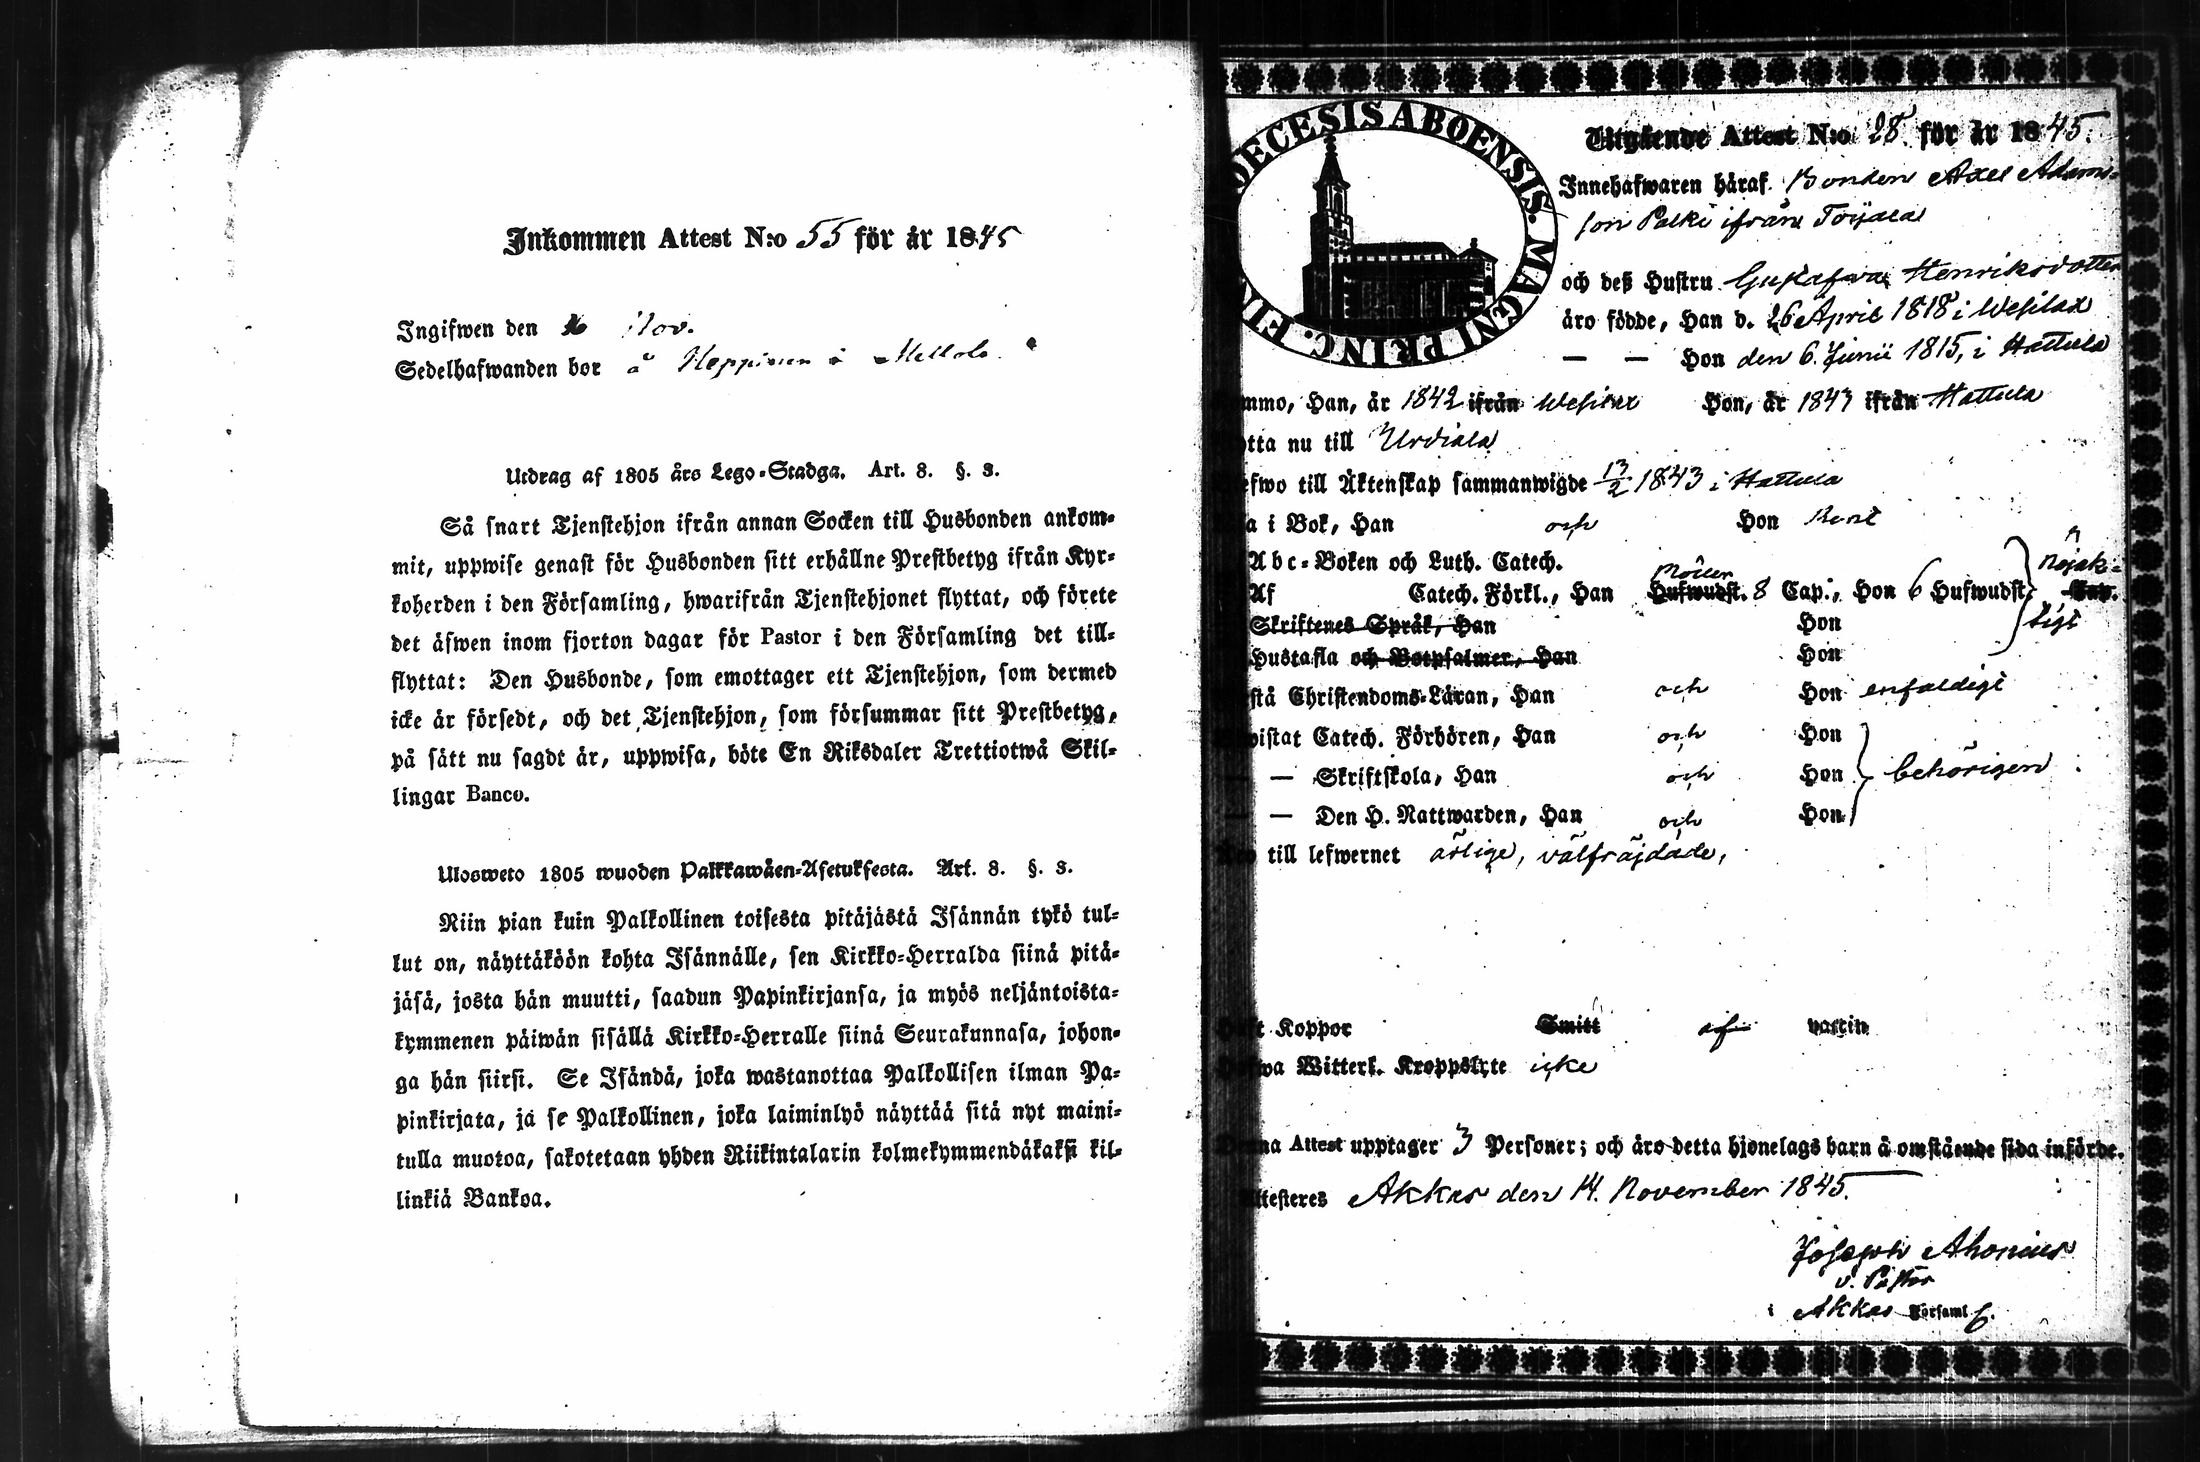 Inkommen Attest N:o 55 för år 1845
Ingifwen den Nov.
Sedelhafwanden bor å Heppinen i Mellola
Utdrag af 1805 års Lego-Stadga. Art. 8. §. 3.
Så snart Tjenstehjon ifrån annan Socken till Husbonden ankom-
mit, uppwise genast för Husbonden sitt erhållne Prestbetyg ifrån Kyr-
koherden i den Församling, hwarifrån Tjenstehjonet flyttat, och förete
det äfwen inom fjorton dagar för Pastor i den Församling det till-
flyttat: Den Husbonde, som emottager ett Tjenstehjon, som dermed
icke är försedt, och det Tjenstehjon, som försummar sitt Prestbetyg,
på sätt nu sagdt är, uppwisa, böte En Riksdaler Trettiotwå Skil-
lingar Banco.
Ulosweto 1805 wuoden Palkkawäen-Asetuksesta. Art. 8. §. 3.
Niin pian kuin Palkollinen toisesta pitäjästä Isännän tykö tul-
lut on, näyttäköön kohta Isännälle, sen Kirkko-Herralda siinä pitä-
jäsä, josta hän muutti, saadun Papinkirjansa, ja myös neljäntoista-
kymmenen päiwän sisällä Kirkko-Herralle siinä Seurakunnasa, johon-
ga hän siirsi. Se Isändä, joka wastanottaa Palkollisen ilman Pa-
pinkirjata, ja se Palkollinen, joka laiminlyö näyttää sitä nyt maini-
tulla muotoa, sakotetaan yhden Riikintalarin kolmekymmendäkaksi kil-
linkiä Bankoa.
DECESIS ABOENSIS. MAGNI PRINC. FIN
Utgående Attest N:o 28. för år 1845.
Innehafwaren häraf Bonden Axel Adams-
son Palki ifrån Toijala
och deß Hustru Gustafva Henriksdotter
äro födde, Han d. 26 April 1818 i Wesilax
— — Hon den 6. Junii 1815, i Hattula
ommo, Han, år 1842 ifrån Wesilax Hon, år 1843 ifrån Hattula
tta nu till Urdiala
efwo till Äktenskap sammanwigde 13/2 1843 i Hattula
a i Bok, Han och Hon Rent
Abc-Boken och Luth. Catech.
Af Catech. Förkl., Han Möller Hufwudst. 8 Cap., Hon 6 Hufwudst. Cap. nöjak-
tigt
Skriftenes Språk, Han Hon
Hustafla och Botpsalmer, Han Hon
stå Christendoms-Läran, Han och Hon enfaldigt
wistat Catech. Förhören, Han och Hon
— Skriftskola, Han och Hon behörigen
— Den H. Nattwarden, Han och Hon
till lefwernet ärlige, välfräjdade,
Koppor Smitt af vaccin
wa Witterl. Kroppslyte icke
na Attest upptager 3 Personer; och äro detta hjonelags barn å omstående sida införde.
ttesteres Akkas den 14. November 1845.
Joseph Ahonius
v. Pastor
i Akkas Församl